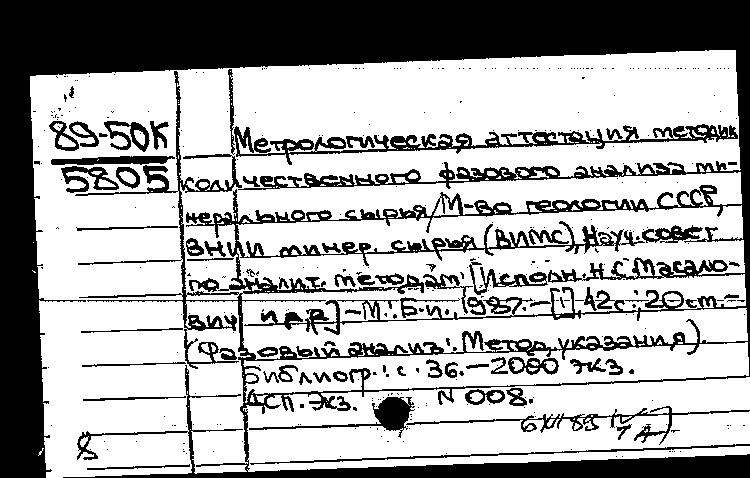 89-50К
5805
Метрологическая аттестация методик
количественного фазового анализа ми-
нерального сырья/М-во геологии СССР,
ВНИИ минер. сырья (ВИМС), Науч. совет
по аналит. методам; [Исполн. Н.С. Масало-
вич и др.] - М.: Б.и., 1987. - [1], 42 с.; 20 см. -
(Фазовый анализ: Метод. указания).
Библиогр.: с. 36. - 2000 экз.
ДСП. Экз. N 008.
8